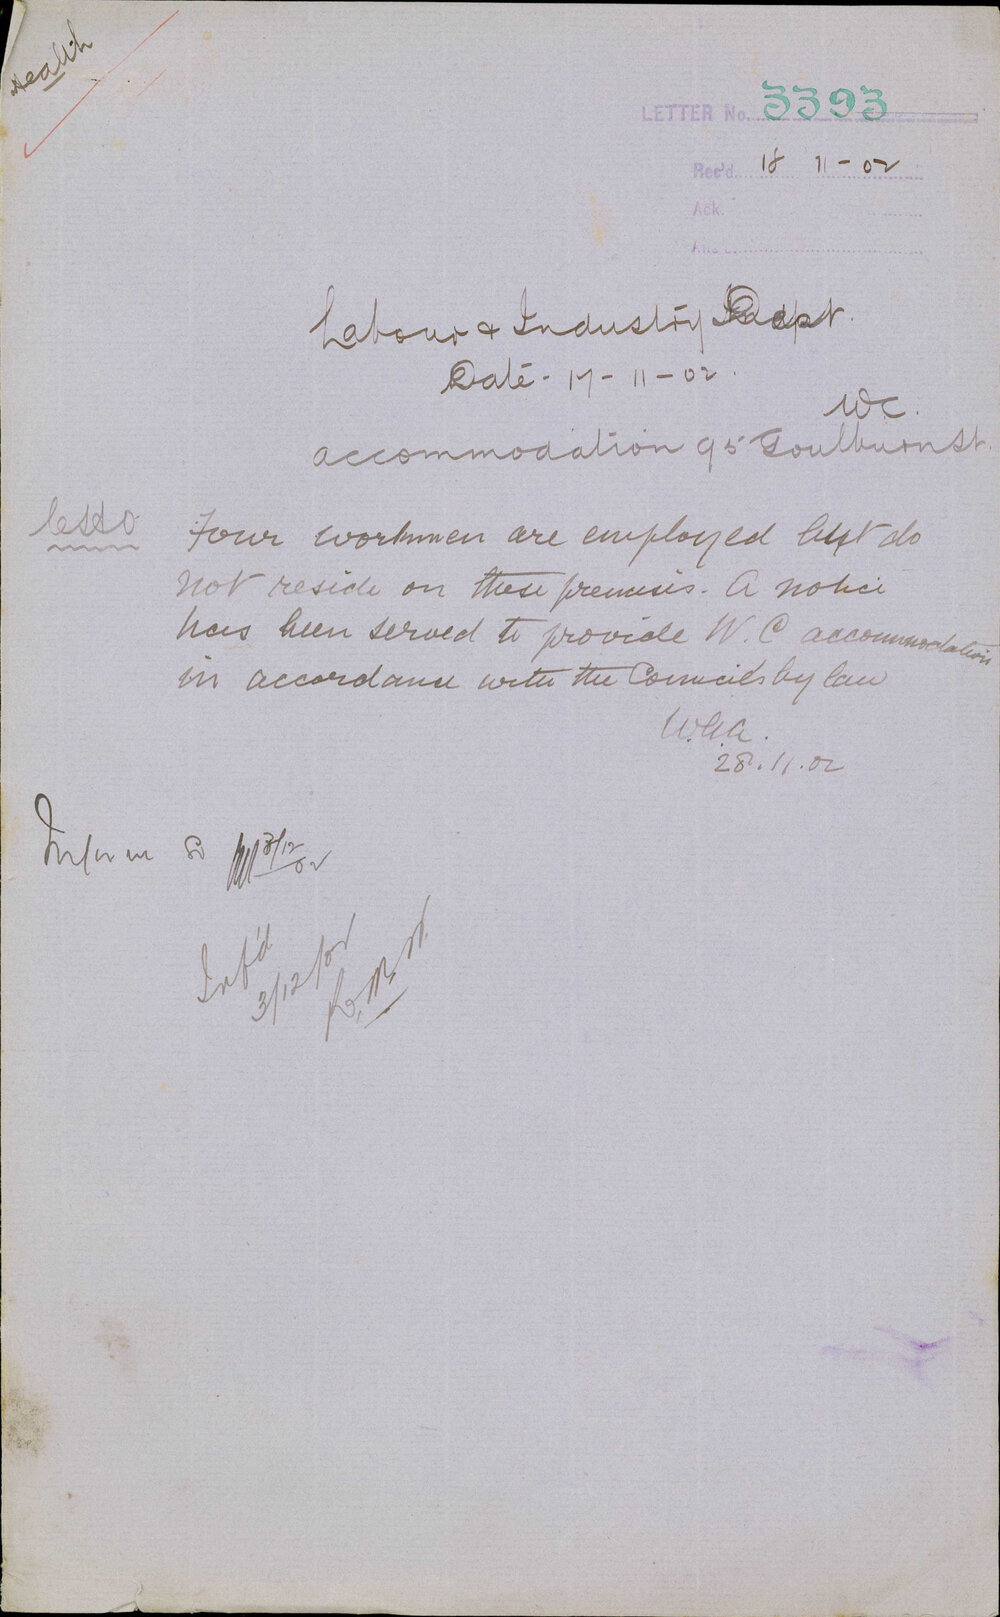 Health
LETTER No. 3393
Rec'd 18 11-02
Ack.
Labour & Industry Dept.
Date - 17-11-02.
W.C.
accommodation 95 Goulburn St.
Four workmen are employed but do
not reside on these premises. A notice
has been served to provide W.C accommodation
in accordance with the Councils by law
28.11.02
Inform 3/12/02
Inf'd
3/12/02